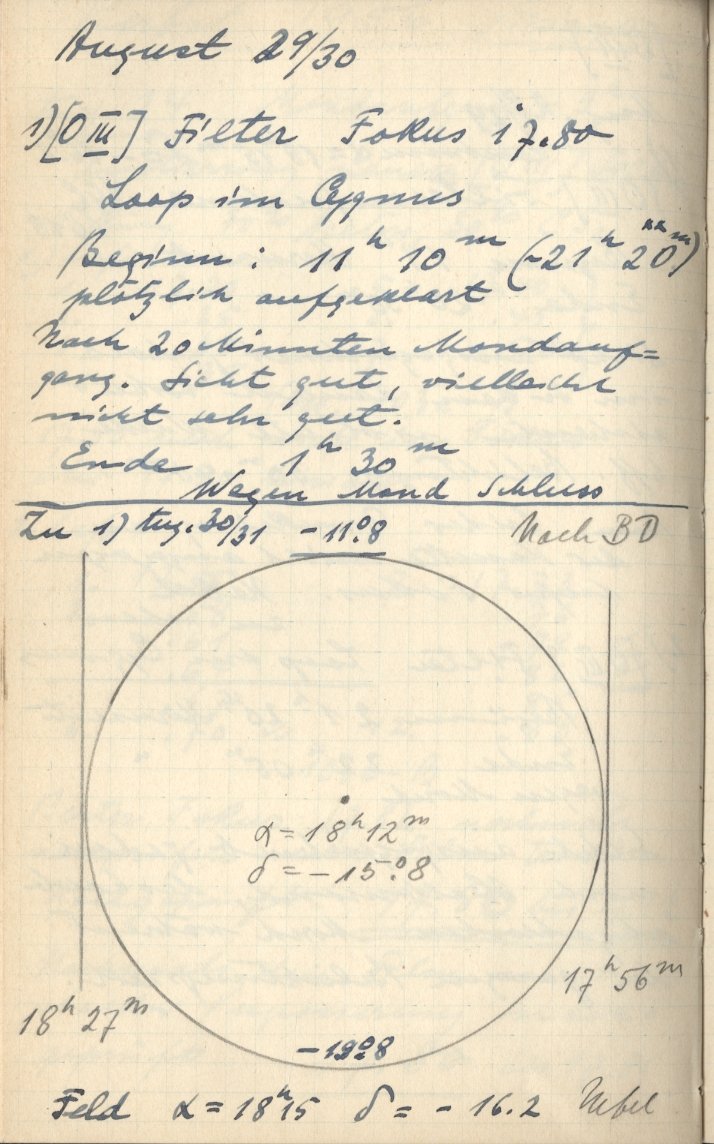 August 29/30
1) [O III] Filter Fokus 17.80
Loop im Cygnus
Beginn: 11ʰ 10ᵐ (-21ʰ 20ᵐ)
plötzlich aufgeklart
Nach 20 Minuten Mondauf=
gang. Sicht gut, vielleicht
nicht sehr gut.
Ende 1ʰ 30ᵐ
Wegen Mond Schluss
Zu 1) Aug. 30/31 -11°8 Nach BD
α = 18ʰ 12ᵐ
δ = -15°8
17ʰ 56ᵐ
18ʰ 27ᵐ
-19°8
Feld α = 18ʰ15 δ = -16.2 Nebel